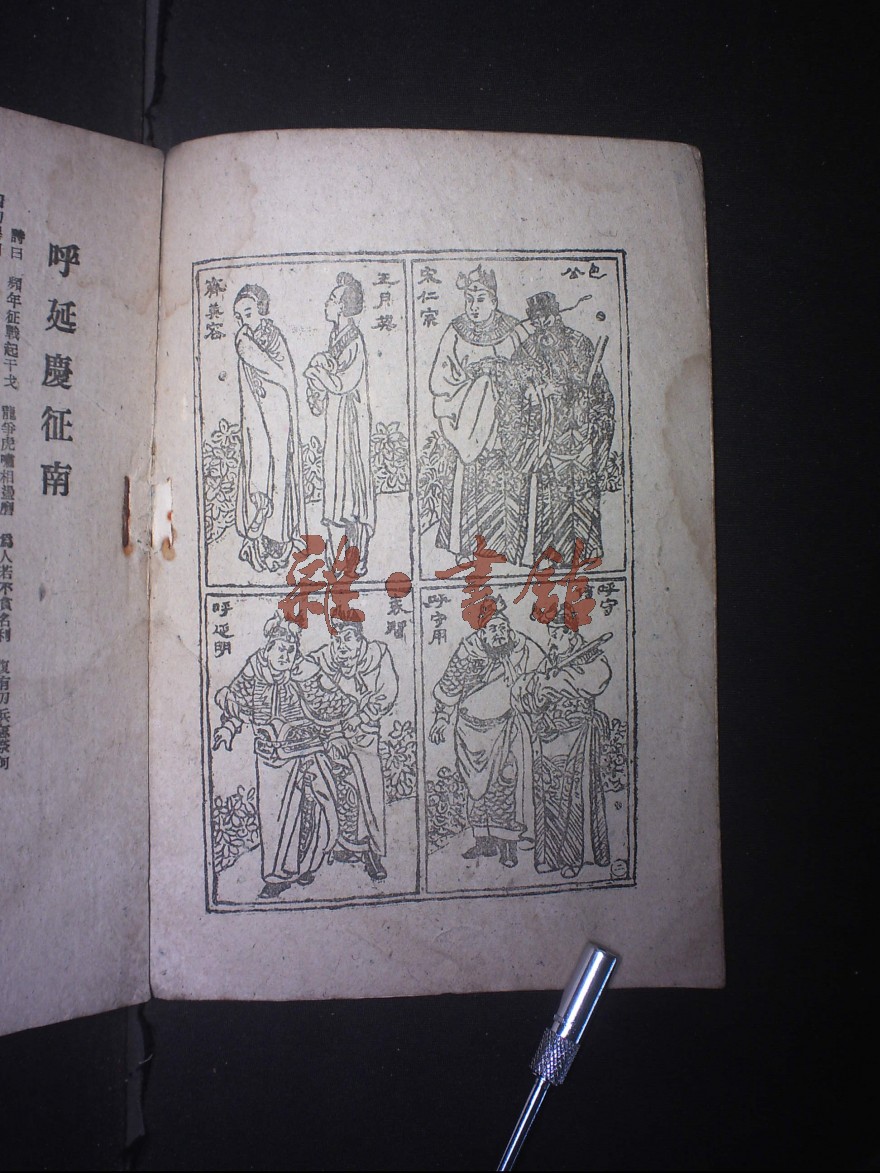 包公
宋仁宗
王月英
齊美容
呼守
呼守用
呼延明
雜·書館
呼延慶征南
詩曰 頻年征戰起干戈 龍爭虎嘯相盪磨 爲人若不貪名利